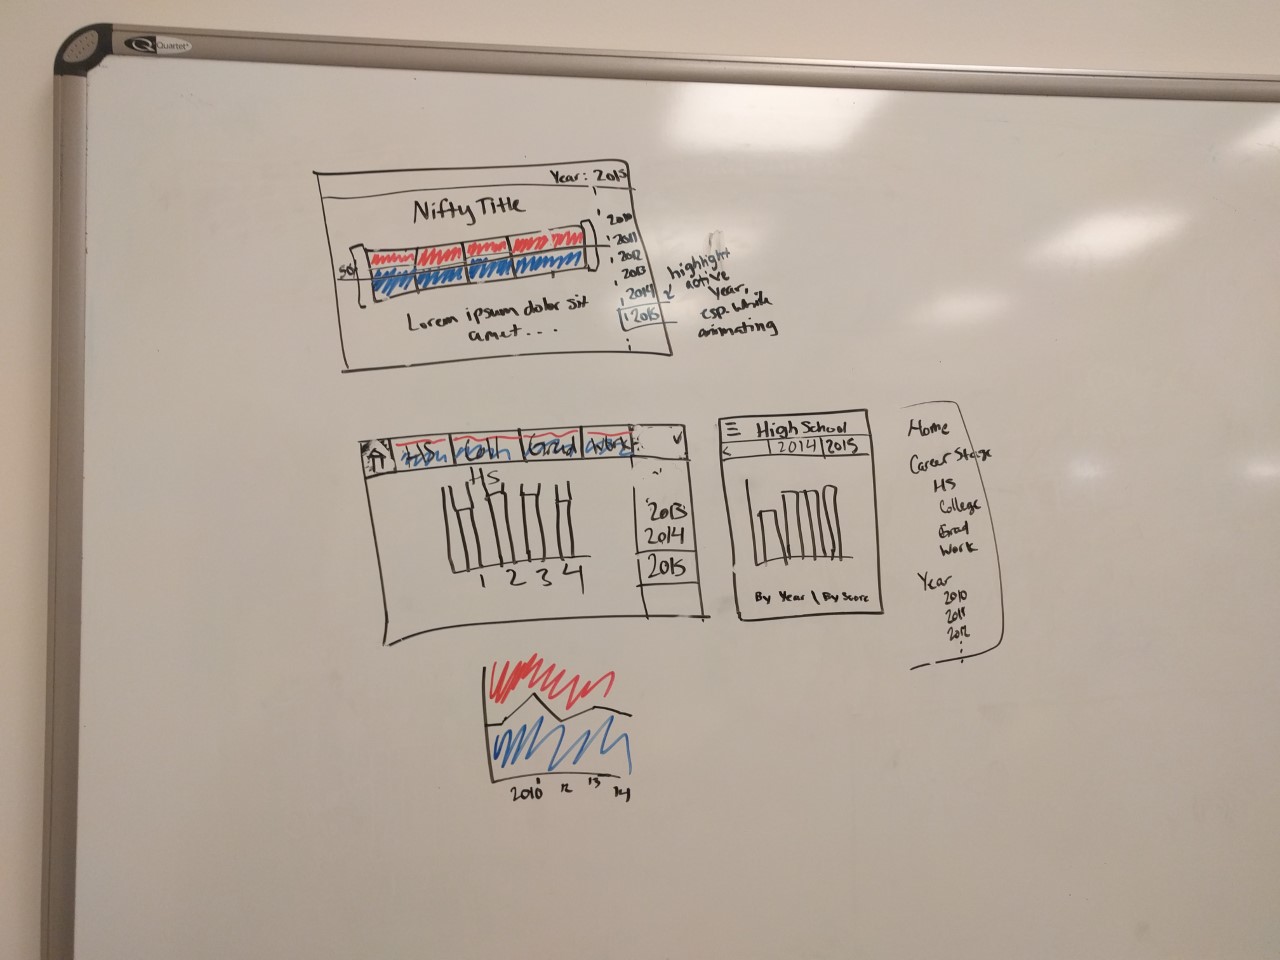 Quartet
Year: 2015
Nifty Title
2010
2011
2012
2013
2014
2015
highlight
active
year,
esp. while
animating
Lorem ipsum dolor sit
amet...
HS Coll Grad Work
HS
2013
2014
2015
1 2 3 4
High School
< 2014 2015
By Year \ By Score
Home
Career Stage
HS
College
Grad
Work
Year
2010
2011
2012
2010 12 13 14